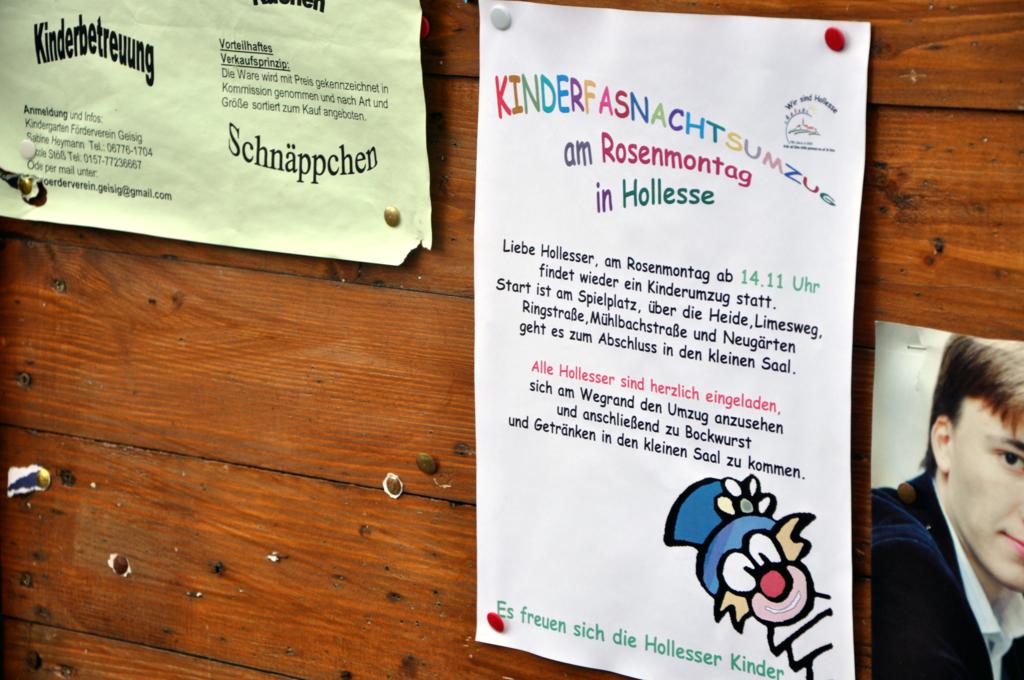 Kinderbetreuung
Anmeldung und Infos:
Kindergarten Förderverein Geisig
Sabine Heymann Tel.: 06776-1704
Stöß Tel: 0157-77236667
Ode per mail unter:
foerderverein.geisig@gmail.com
Vorteilhaftes
Verkaufsprinzip:
Die Ware wird mit Preis gekennzeichnet in
Kommission genommen und nach Art und
Größe sortiert zum Kauf angeboten.
Schnäppchen
KINDERFASNACHTSUMZUG
am Rosenmontag
in Hollesse
Wir sind Hollesse
Liebe Hollesser, am Rosenmontag ab 14.11 Uhr
findet wieder ein Kinderumzug statt.
Start ist am Spielplatz, über die Heide,Limesweg,
Ringstraße,Mühlbachstraße und Neugärten
geht es zum Abschluss in den kleinen Saal.
Alle Hollesser sind herzlich eingeladen,
sich am Wegrand den Umzug anzusehen
und anschließend zu Bockwurst
und Getränken in den kleinen Saal zu kommen.
Es freuen sich die Hollesser Kinder